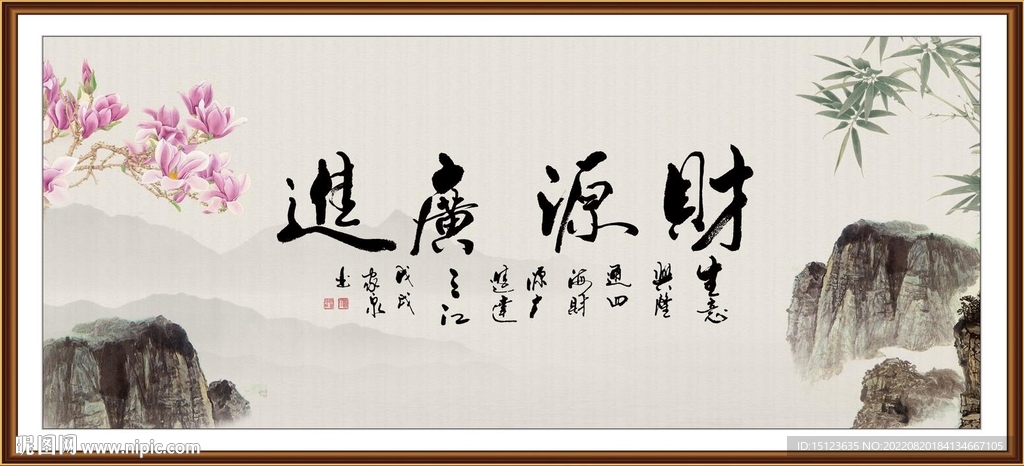 財源廣進
生意
興隆
通四
海財
源茂
盛達
三江
戊戌
家泉
书
昵图网 www.nipic.com
ID:15123635 NO:20220820184134667105